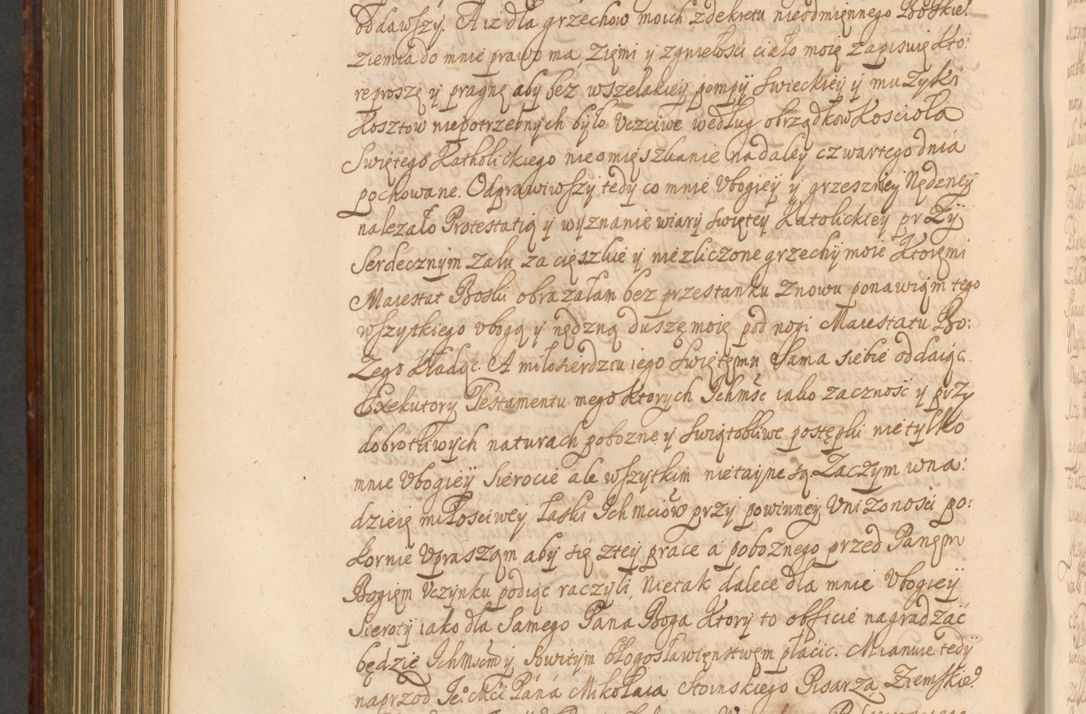 oddawszy. A iż dla grzechow moich zdekretu nieodmięnnego Boskie:
ziemia do mnie prawo ma, Zięmi y zgniełosci ciało moię zapisuię Kto:
re proszę y pragnę aby bez wszelakiey pompy swieckiey y muzyki
Kosztow niepotrzebnych było Uczciwe według obrządkow Koscioła
Swiętego Katholickiego nieomięszkanie nadaley czwartego dnia
pochowane. Odprawiwszy tedy co mnie Vbogiey y grzeszney Nędzney
należało Protestatią y wyznanie wiary swiętey Katolickiey przy
Serdecznym żalu za cięszkie y niezliczone grzechy moie Ktoręmi
Maiestat Boski obrażałam bez przestanku Znowu ponawiąm tego
wszytkiego vbogą y nędzną duszę moię pod nogi Maiestatu Bo:
żego Kładąc. A miłosierdziu iego Swiętęmu Sama siebie oddaiąc
Exekutory Testamentu mego Ktorych Ichmśc iako zacznośc y przy
dobrotliwych naturach pobożne y swiątobliwe postępki nie tylko
mnie Vbogiey Sierocie ale wszytkim nietayne są. Zaczym wna:
dzieię miłosciwey łaski Ichmciow przy powinney Uniżonosci po:
kornie Uprasząm aby się ztey prace a pobożnego przed Panęm
Bogięm Uczynku podiąc raczyli, Nietak dalece dla mnie Vbogiey
Sieroty iako dla Samego Pana Boga Ktory to obficie nagradzać
będzie Ichmsciom y Sowitym błogosławięnstwem płacic. Mianuie tedy
naprzod Ie: Mci Pána Mikołaia Stoinskiego Pisarza Ziemskie: